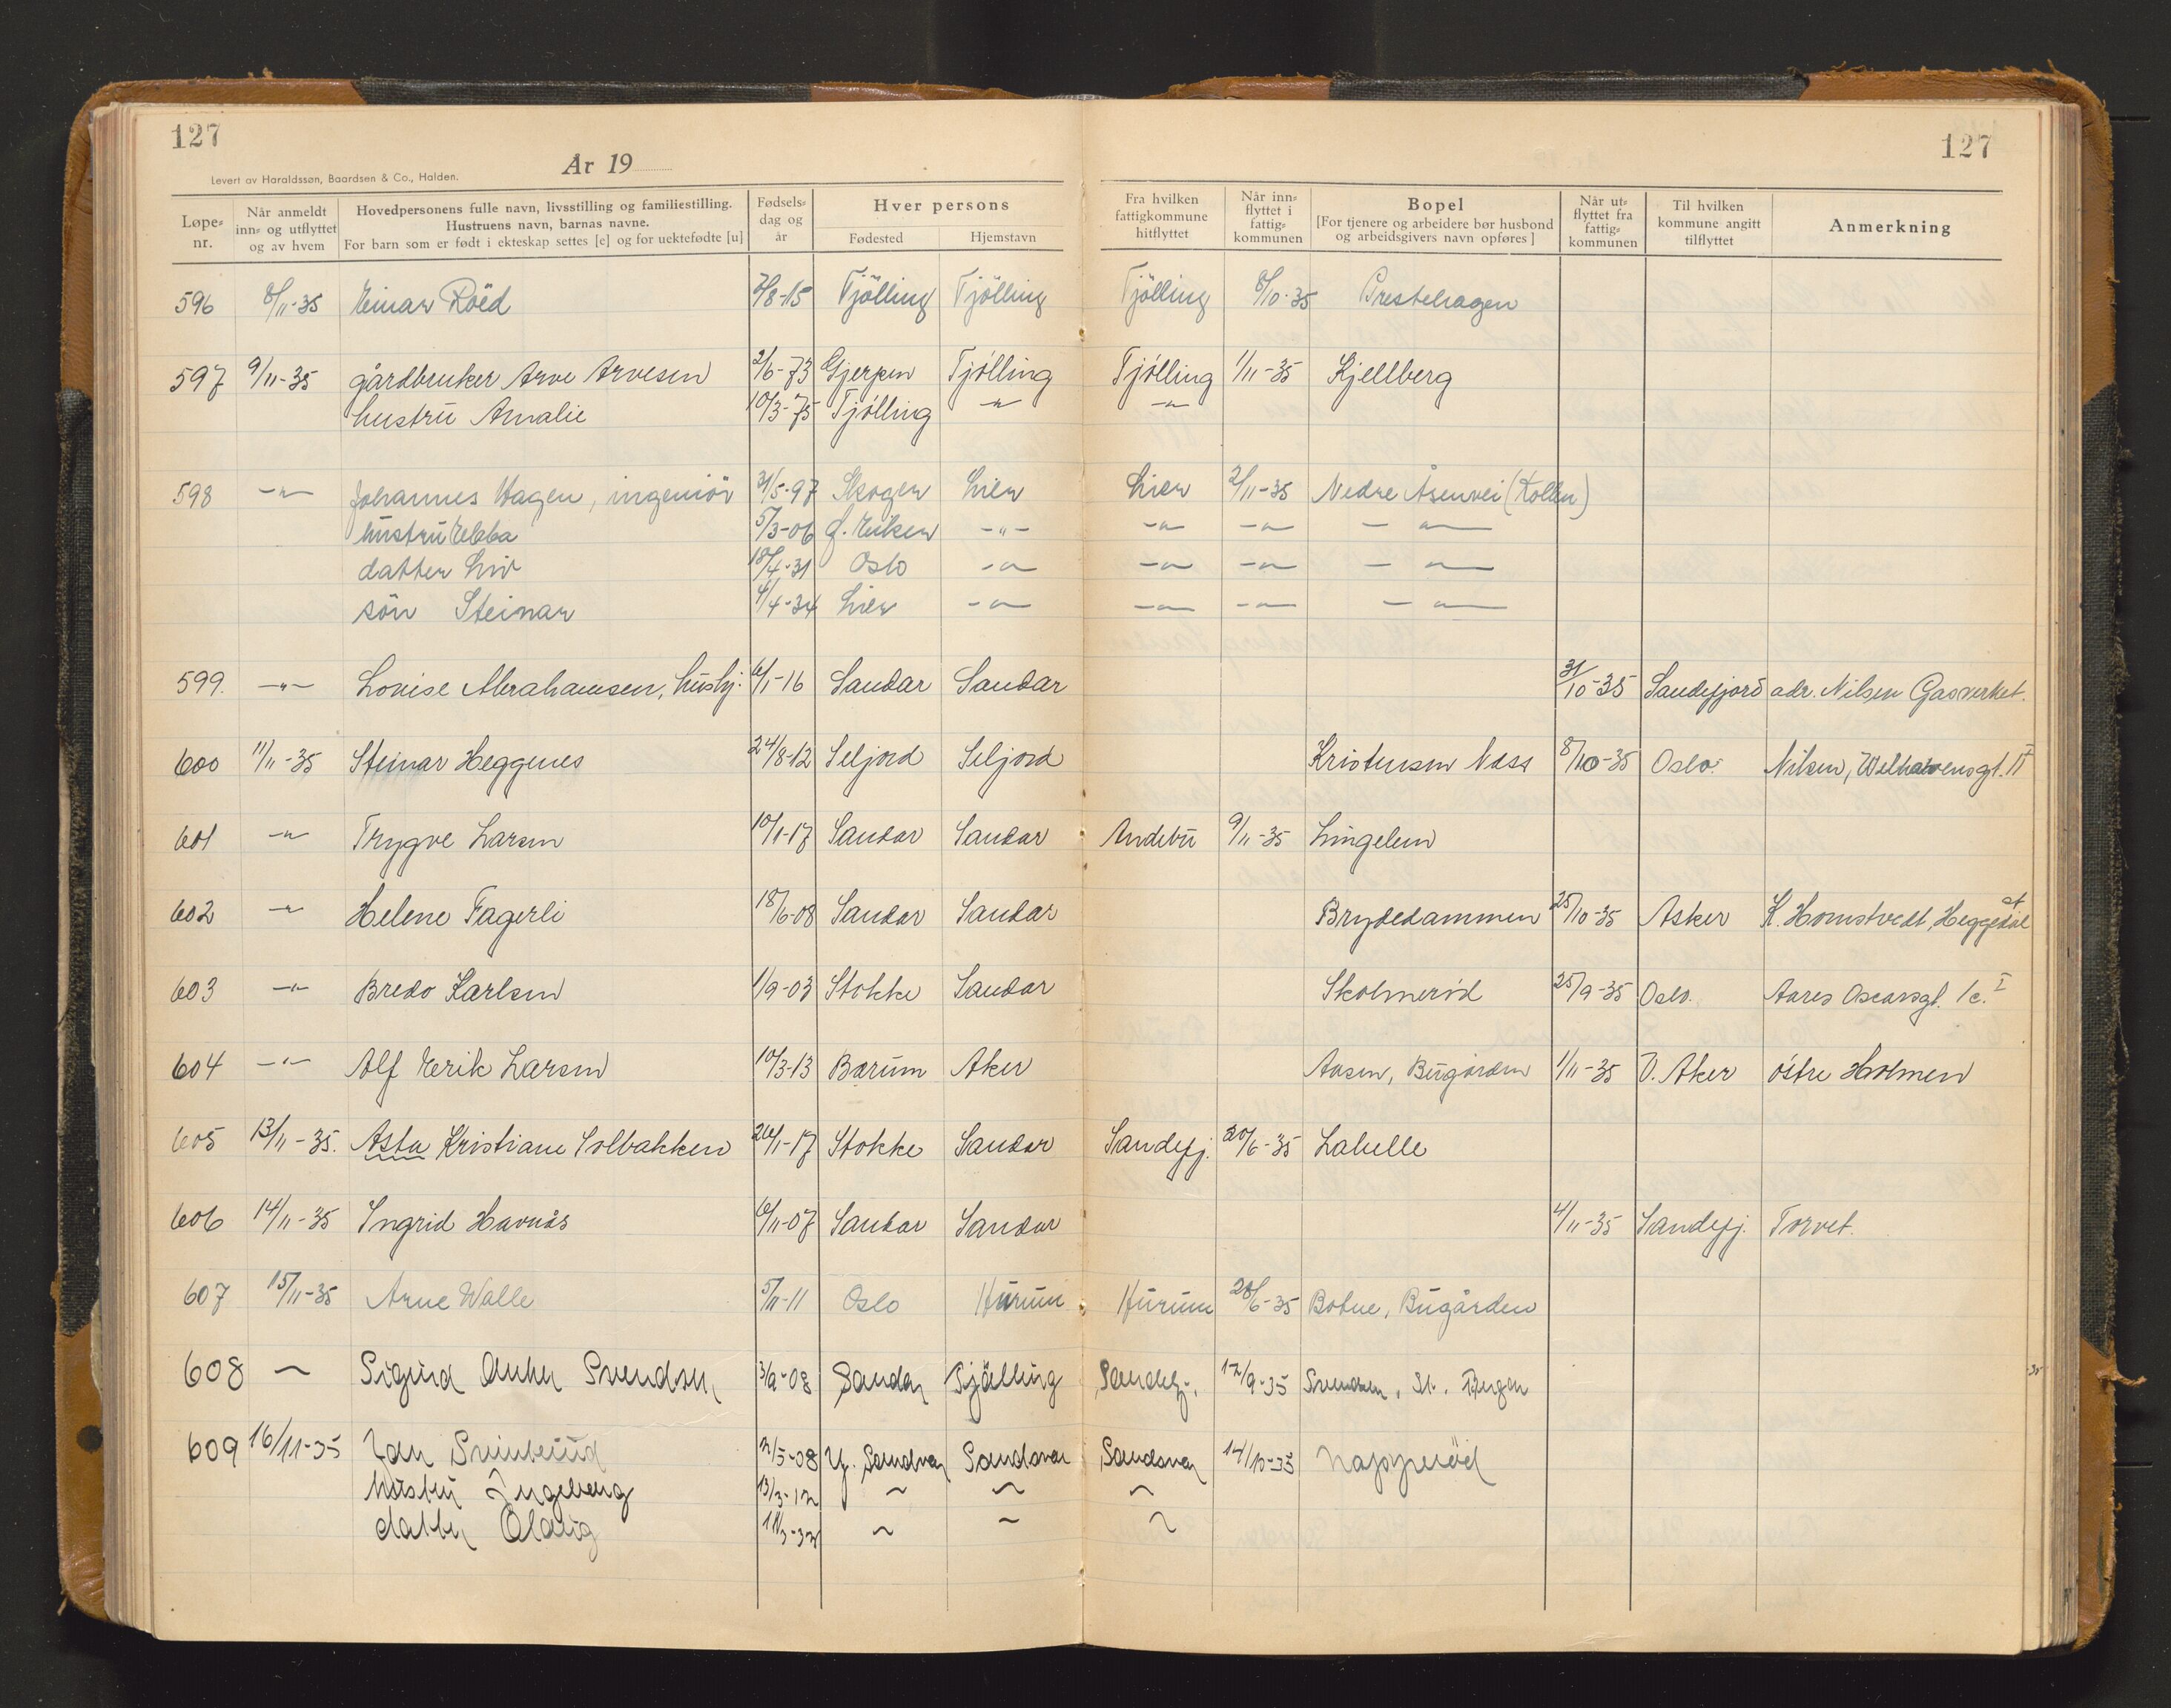 127
127
År 19
Levert av Haraldssøn, Baardsen & Co., Halden.
Løpe-nr. | Når anmeldt inn- og utflyttet og av hvem | Hovedpersonens fulle navn, livsstilling og familiestilling. Hustruens navn, barnas navne. For barn som er født i ekteskap settes [e] og for uektefødte [u] | Fødsels-dag og år | Hver persons Fødested | Hjemstavn | Fra hvilken fattigkommune hitflyttet | Når inn-flyttet i fattig-kommunen | Bopel [For tjenere og arbeidere bør husbond og arbeidsgivers navn opføres] | Når ut-flyttet fra fattig-kommunen | Til hvilken kommune angitt tilflyttet | Anmerkning
596 8/11-35 Einar Röed 7/8-15 Tjölling Tjölling Tjölling 8/10-35 Prestehagen
597 9/11-35 gårdbruker Arve Arvesen 2/6-73 Gjerpen Tjølling Tjølling 1/11-35 Kjellberg
hustru Amalie 10/3-75 Tjølling -"- -"-
598 -"- Johannes Hagen, ingeniör 31/5-97 Skoger Lier Lier 2/11-35 Nedre Åsenvei (Kollen)
hustru Ebba 5/3-06 -"- -"- -"- -"-
datter Liv 18/4-31 Oslo -"- -"- -"- -"-
sön Steinar 4/4-34 Lier -"- -"- -"- -"-
599. -"- Louise Abrahamsen, hushj. 6/1-16 Sandar Sandar 31/10-35 Sandefjord adr. Nilsen Gasverket.
600 11/11-35 Steinar Heggenes 24/8-12 Seljord Seljord Kristensen Næss 8/10-35 Oslo. Nilsen, Welhavensgt. II
601 -"- Trygve Larsen 10/1-17 Sandar Sandar Andebu 9/11-35 Lingelem
602 -"- Helene Fagerli 18/6-08 Sandar Sandar Brydedammen 25/10-35 Asker K. Homstvedt, Heggedal st
603 -"- Bredo Karlsen 1/9-03 Stokke Sandar Skolmerød 25/9-35 Oslo. Aares Oscarsgt. 1c. I
604 -"- Alf Eerik Larsen 10/3-13 Bærum Aker Aasen, Bugården 1/11-35 V. Aker østre Holmen
605 13/11-35. Asta Kristiane Solbakken 26/1-17 Stokke Sandar Sandefj. 20/6-35 Labelle
606 14/11-35 Ingrid Havnås 6/11-07 Sandar Sandar 4/11-35 Sandefj. Torvet.
607 15/11-35 Arne Walle 5/11-11 Oslo Hurum Hurum 28/6-35 Botne, Bugården
608 Sigurd Anker Svendsen 3/9-08 Sandar Tjölling Sandefj. 12/9-35 Svendsen, St. Bergan
609 16/11-35 Jan 2/5-08 Y. Sandsvær Sandsvær Sandsvær 14/10-35 Napperöd
hustru Ingeborg 13/3-12
datter Oldvig